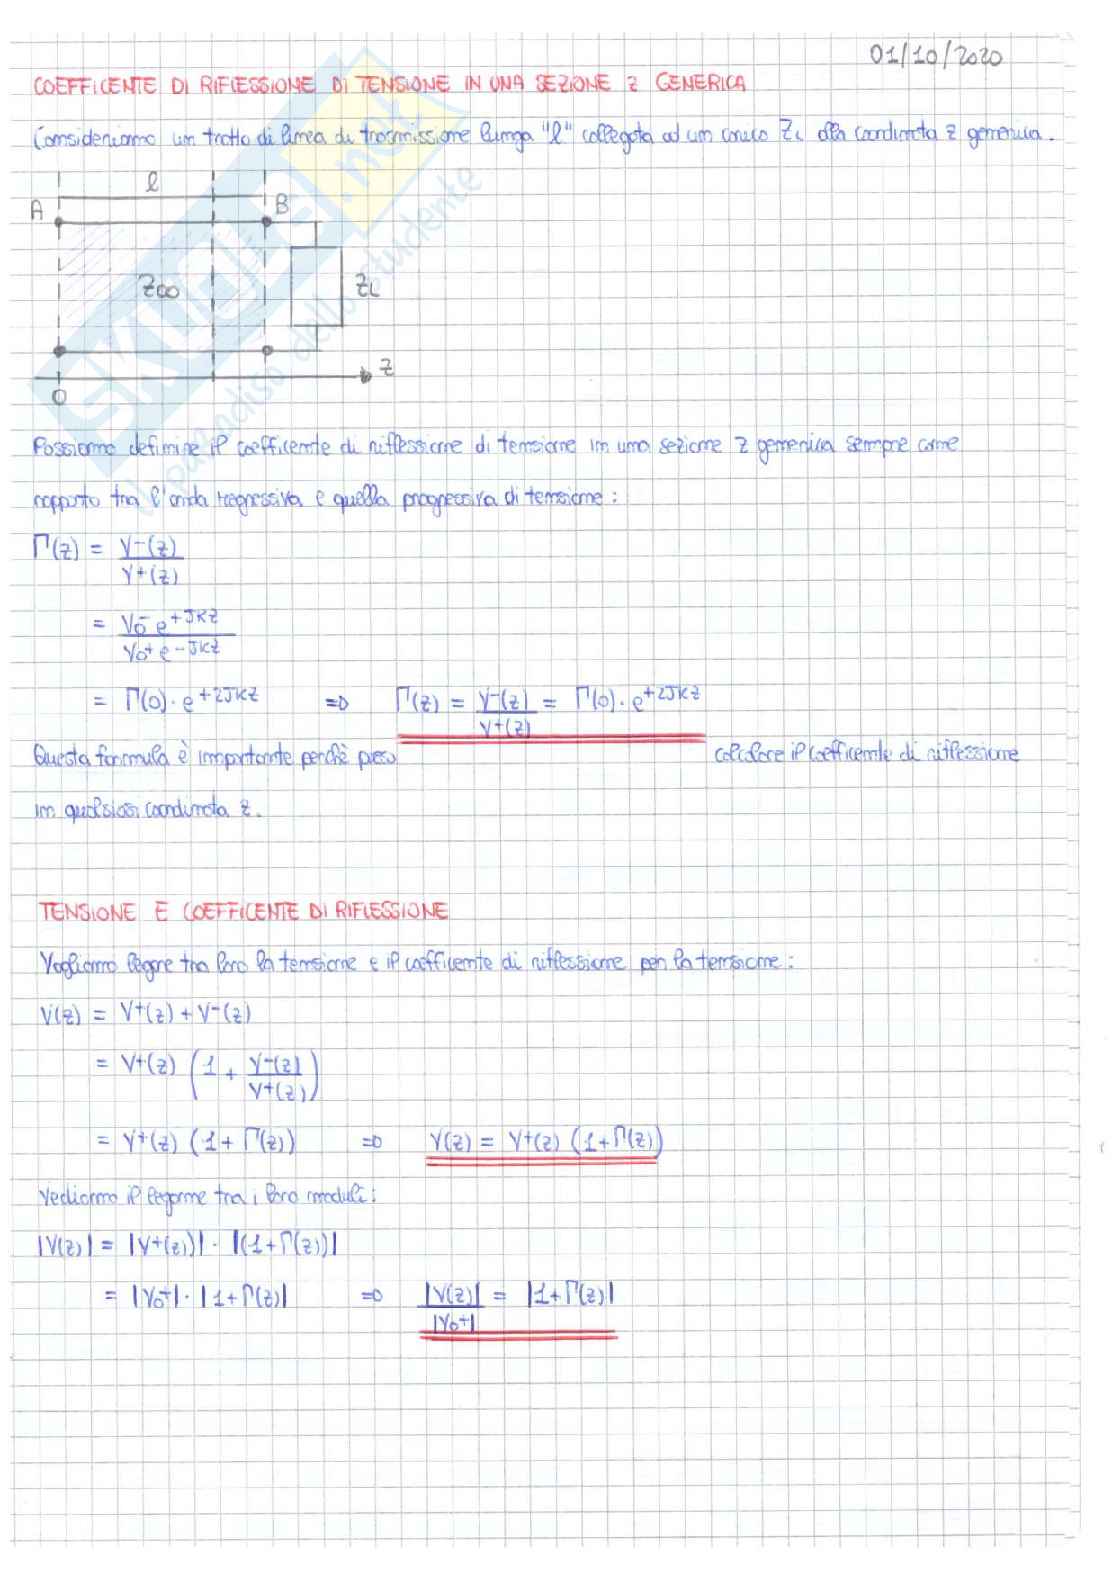 01/10/2020
COEFFICENTE DI RIFLESSIONE DI TENSIONE IN UNA SEZIONE z GENERICA
Consideriamo un tratto di linea di trasmissione lunga "l" collegata ad un carico ZL alla coordinata z generica.
l
A
B
Z∞
ZL
z
0
Possiamo definire il coefficente di riflessione di tensione in una sezione z generica sempre come
rapporto tra l'onda regressiva e quella progressiva di tensione:
Γ(z) = V-(z) / V+(z)
= V0- e^+JKz / V0+ e^-JKz
= Γ(0)·e^+2JKz => Γ(z) = V-(z) / V+(z) = Γ(0)·e^+2JKz
Questa formula è importante perchè calcolare il coefficente di riflessione
in qualsiasi coordinata z.
TENSIONE E COEFFICENTE DI RIFLESSIONE
Vogliamo legare tra loro la tensione e il coefficente di riflessione per la tensione:
V(z) = V+(z) + V-(z)
= V+(z) (1 + V-(z) / V+(z))
= V+(z) (1+Γ(z)) => V(z) = V+(z) (1+Γ(z))
Vediamo il legame tra i loro moduli:
|V(z)| = |V+(z)|·|(1+Γ(z))|
= |V0+|·|1+Γ(z)| => |V(z)| / |V0+| = |1+Γ(z)|
SKUOLA.net
il paradiso dello studente